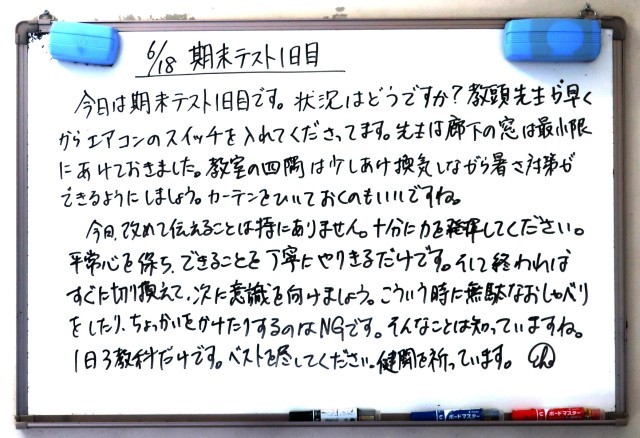 6/18 期末テスト1日目
今日は期末テスト1日目です。状況はどうですか?教頭先生が早く
からエアコンのスイッチを入れてくださってます。先生は廊下の窓は最小限
にあけておきました。教室の四隅は少しあけ換気しながら暑さ対策が
できるようにしましょう。カーテンをひいておくのもいいですね。
今日、改めて伝えることは特にありません。十分に力を発揮してください。
平常心を保ち、できることを丁寧にやりきるだけです。そして終われば
すぐに切り換えて、次に意識を向けましょう。こういう時に無駄なおしゃべり
をしたり、ちょっかいをかけたりするのはNGです。そんなことは知っていますね。
1日3教科だけです。ベストを尽してください。健闘を祈っています。
ボードマスター ボードマスター